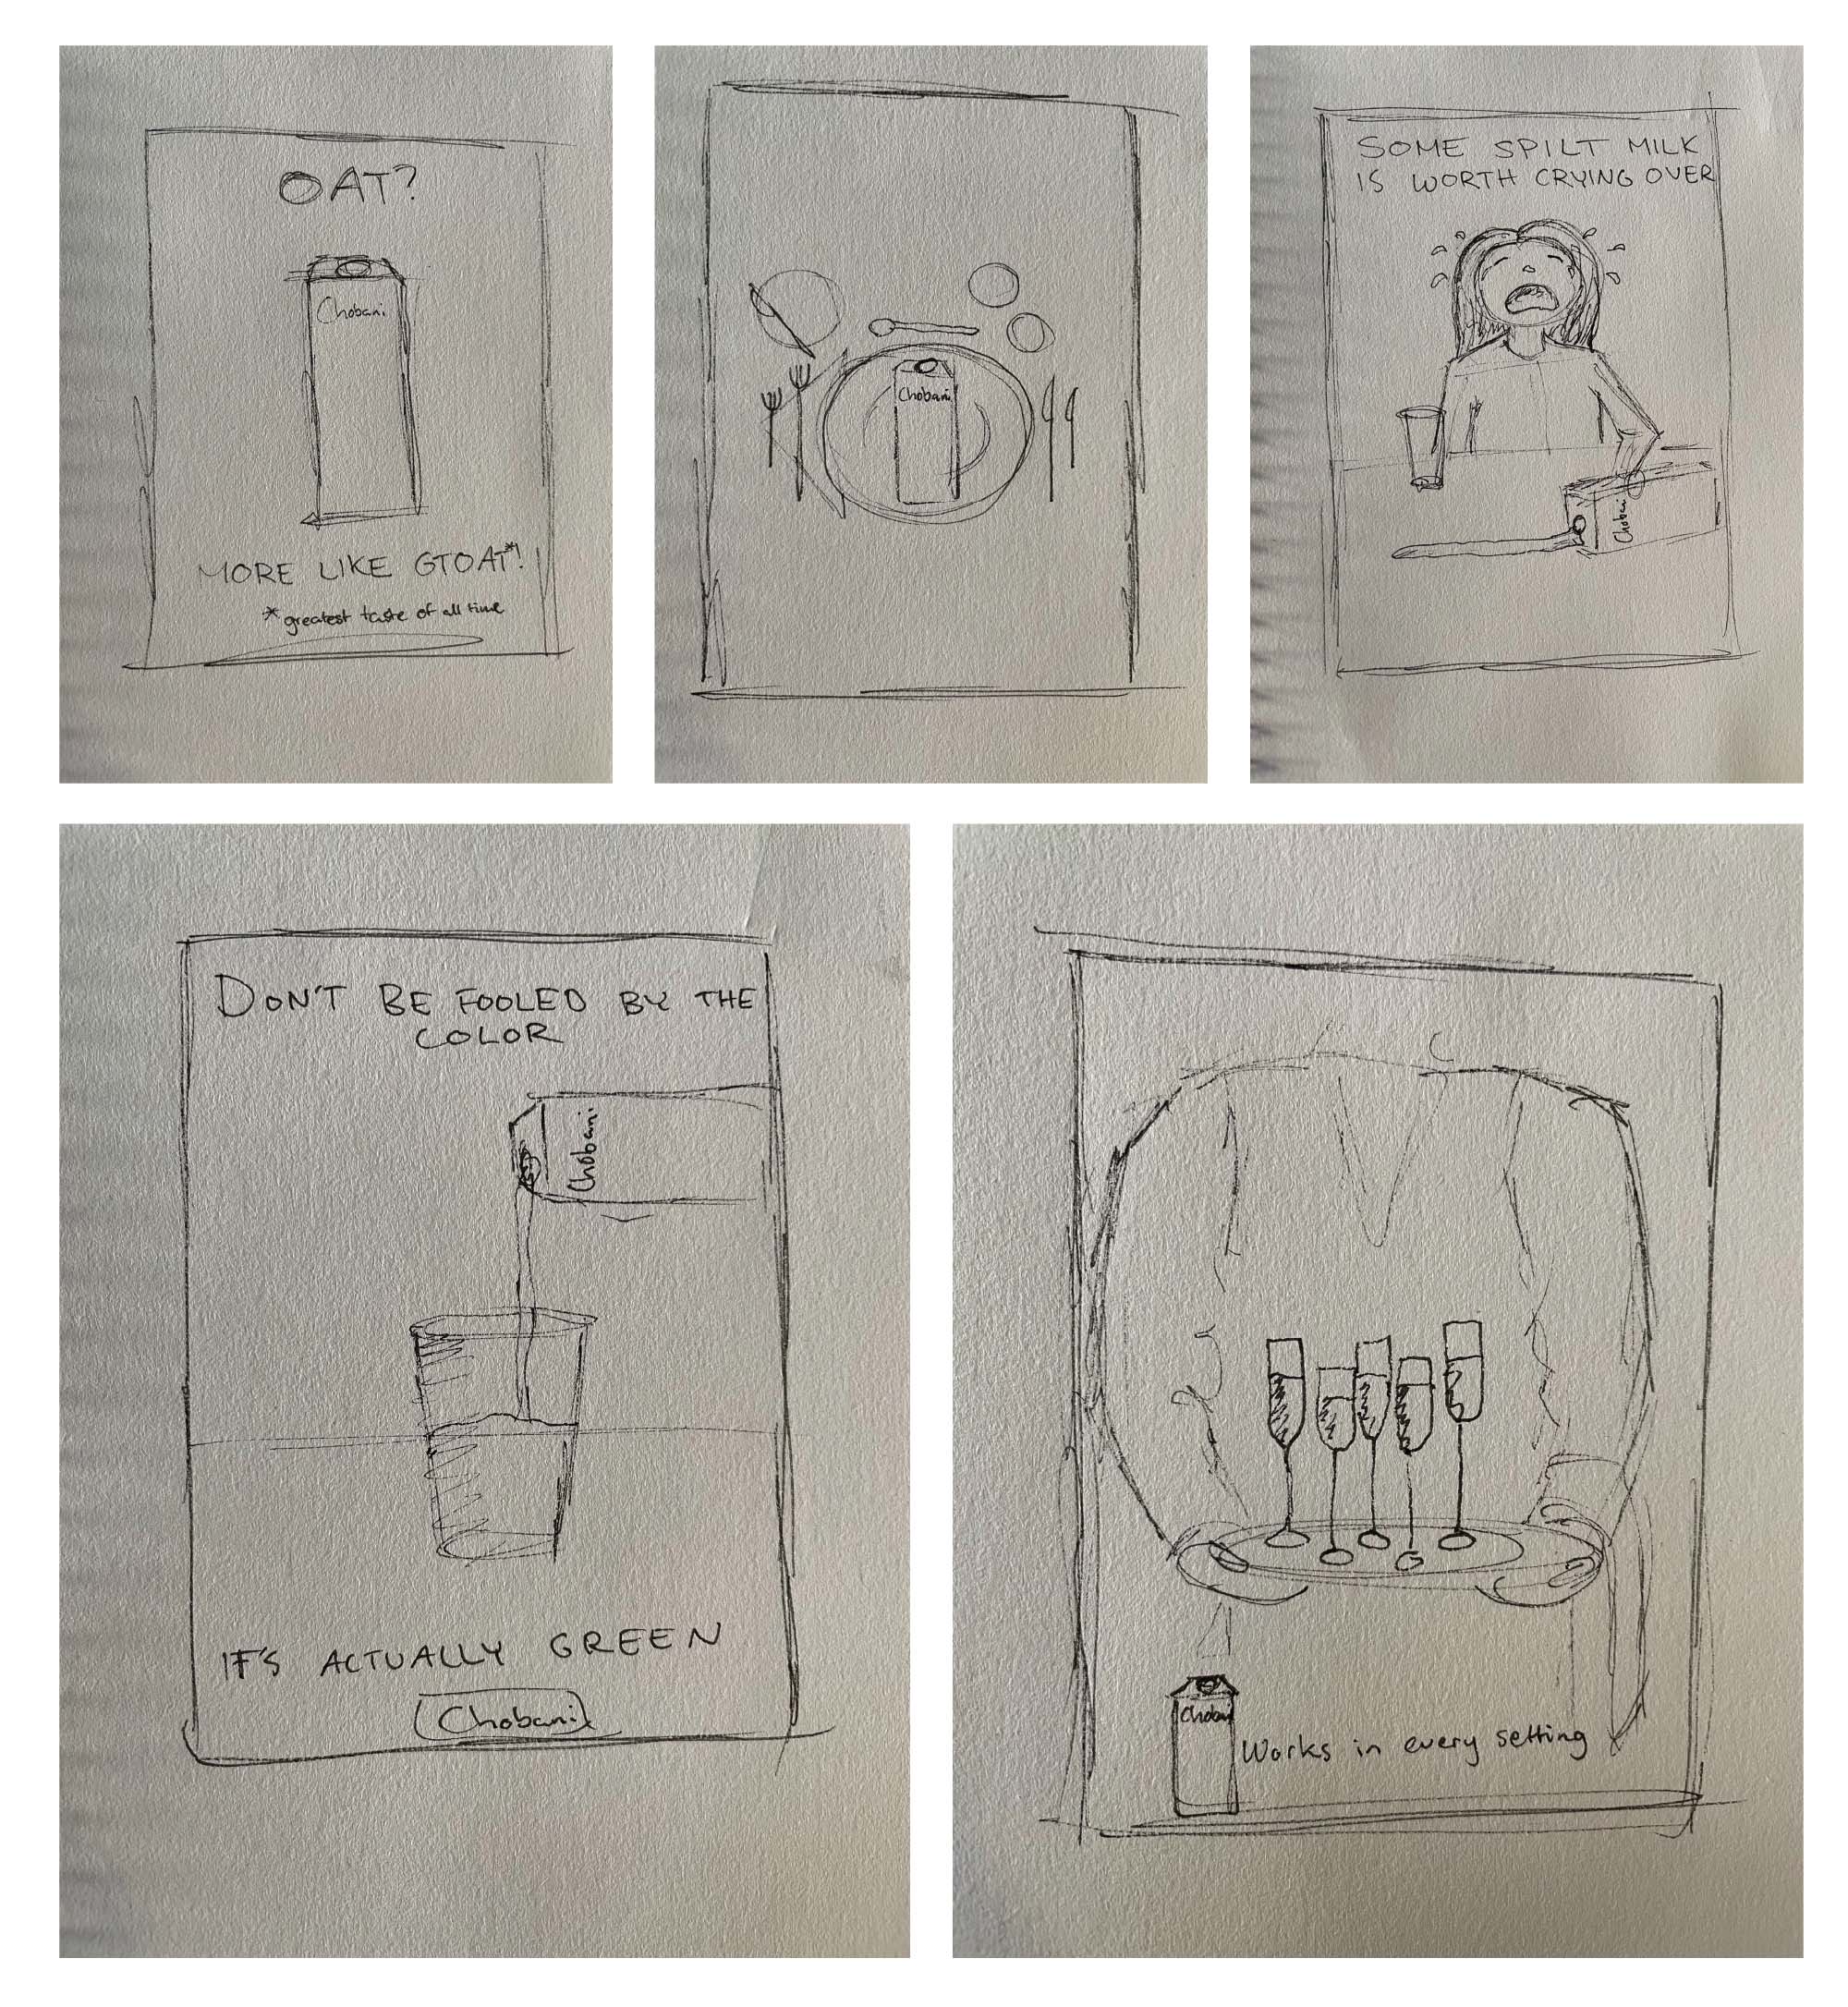 OAT?
Chobani
MORE LIKE GTOAT*!
*greatest taste of all time
Chobani
SOME SPILT MILK
IS WORTH CRYING OVER
Chobani
DON'T BE FOOLED BY THE
COLOR
Chobani
IT'S ACTUALLY GREEN
Chobani
Chobani
Works in every setting